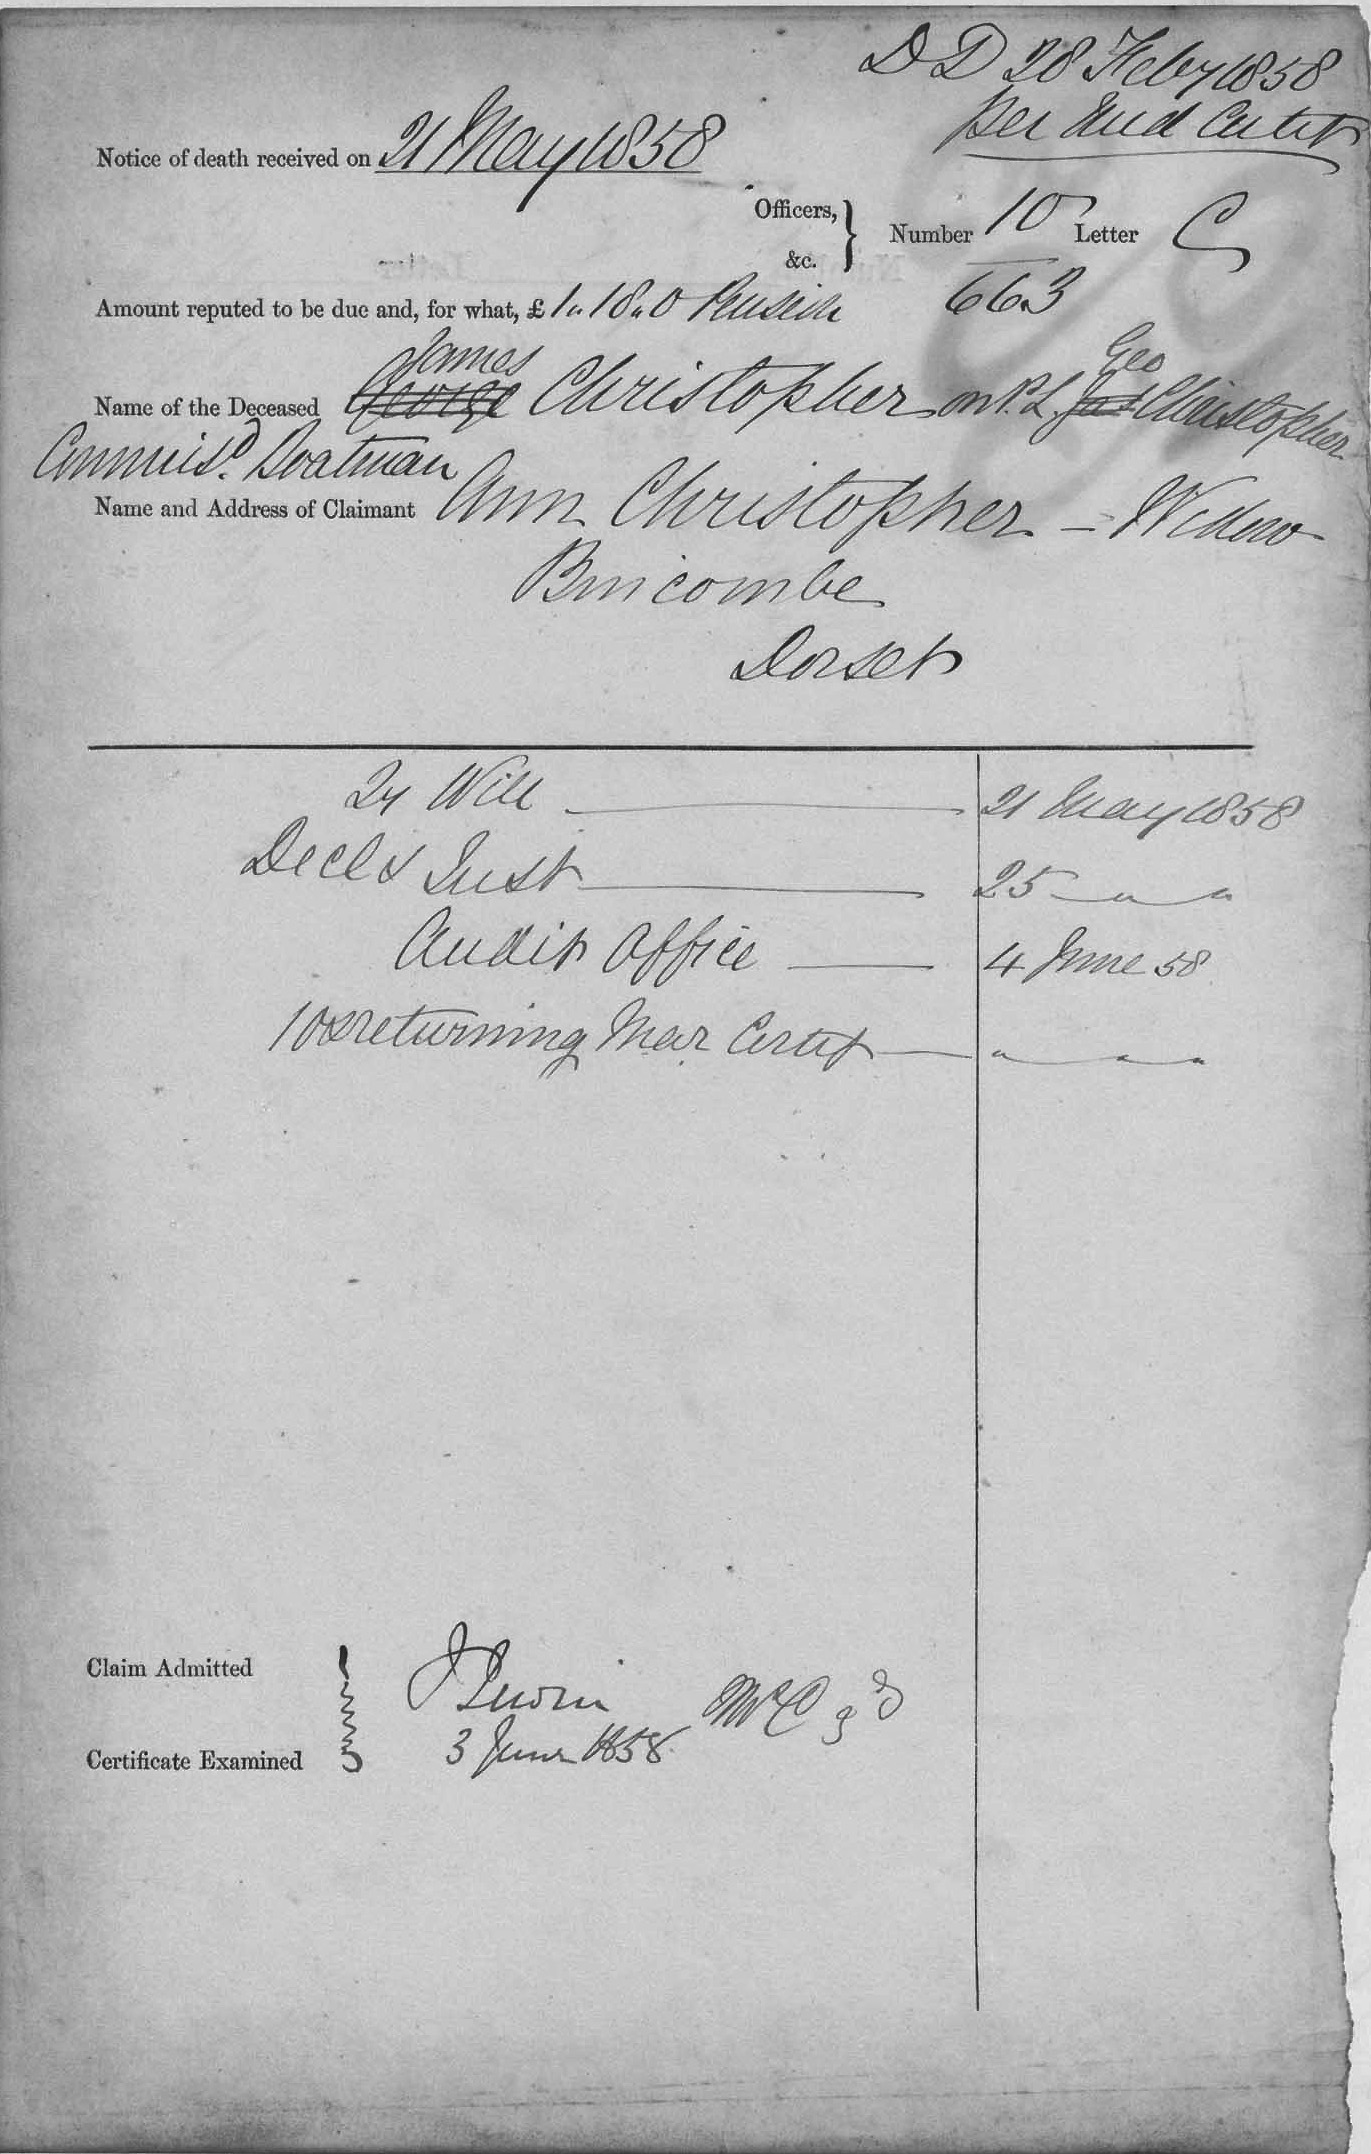 DD 28 Feby 1858
per Aud Certet
Notice of death received on 21 May 1858
Officers, &c. } Number 10 Letter C
663
Amount reputed to be due and, for what, £ 1.. 18.. 0 Pension
James Geo
Name of the Deceased George Christopher on P.L. Jas Christopher
Commisd. Boatman
Name and Address of Claimant Ann Christopher - Widow
Bincombe
Dorset
Qy Will 21 May 1858
Decl & Inst 25 " "
Audit Office 4 June 58
10 & returning Mar Certif " " "
Claim Admitted
3 June 1858.
Certificate Examined